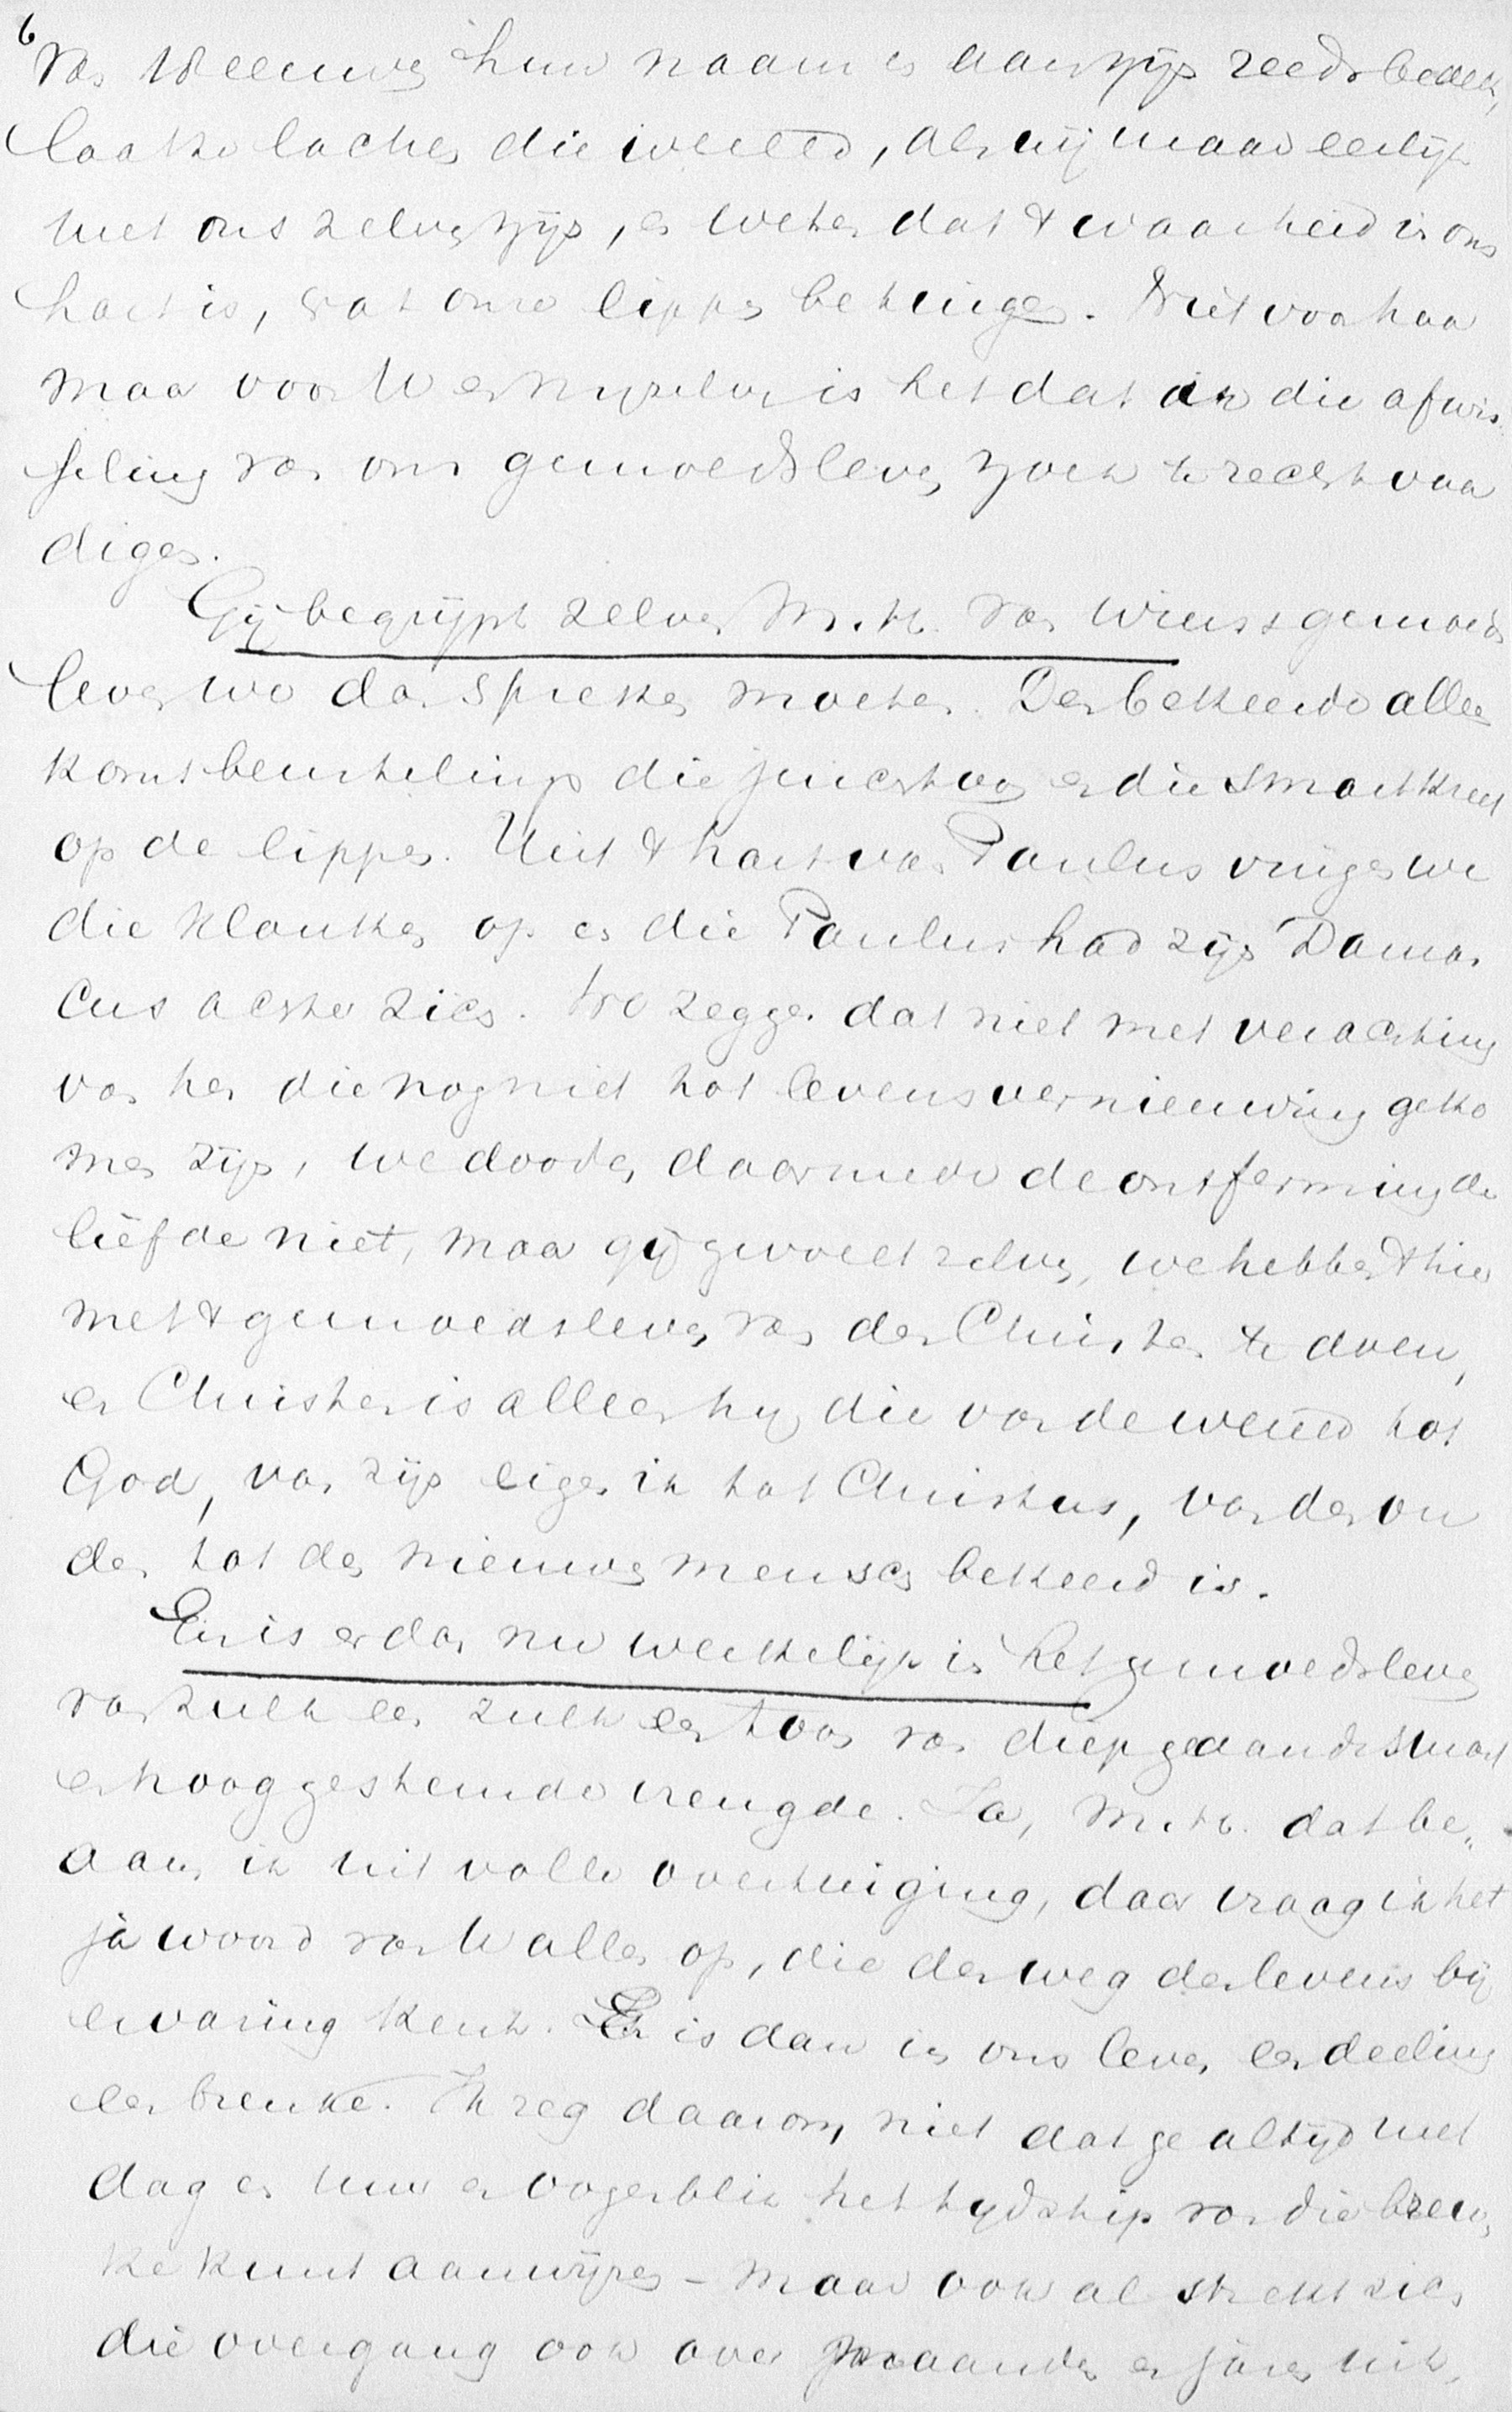 6
van 18 eeuwen hun naam en aanzijn reeds bedekt,
laat ze lachen die wereld, als wij maar eerlijk
met ons zelven zijn, en weten dat 't waarheid in ons
hart is, wat onze lippen betuigen. Niet voor haar
maar voor U en mijzelven is het dat ik die afwis
seling van ons gemoedsleven zoek te rechtvaar
digen.
Gij begrijpt zelven M.H. van wiens gemoeds
leven we dan spreken moeten. Den bekeerde alleen
komt beurtelings die juichtoon en die smartkreet
op de lippen. Uit 't hart van Paulus vingen we
die klanken op en die Paulus had zijn Damas
cus achter zich. We zeggen dat niet met verachting
van hen die nog niet tot levensvernieuwing geko
men zijn, we dooden daarmede de ontferming der
liefde niet, maar gij gevoelt zelven, we hebben 't hier
met 't gemoedsleven van den Christen te doen,
en Christen is alleen hij die van de wereld tot
God, van zijn eigen ik tot Christus, van den ou
den tot den nieuwen mensch bekeerd is.
En is er dan nu werkelijk in het gemoedsleven
van zulk een zulk een toon van diepgaande smart
en hooggestemde vreugde. Ja, M.H. dat be-
aam ik uit volle overtuiging, daar vraag ik het
jawoord van U allen op, die den weg des levens bij
ervaring kent. Er is dan in ons leven een deeling
een breuke. Ik zeg daarom niet dat ge altijd met
dag en uur en oogenblik het tijdstip van die breu,
ke kunt aanwijzen – maar ook al strekt zich
die overgang ook over maanden en jaren uit,